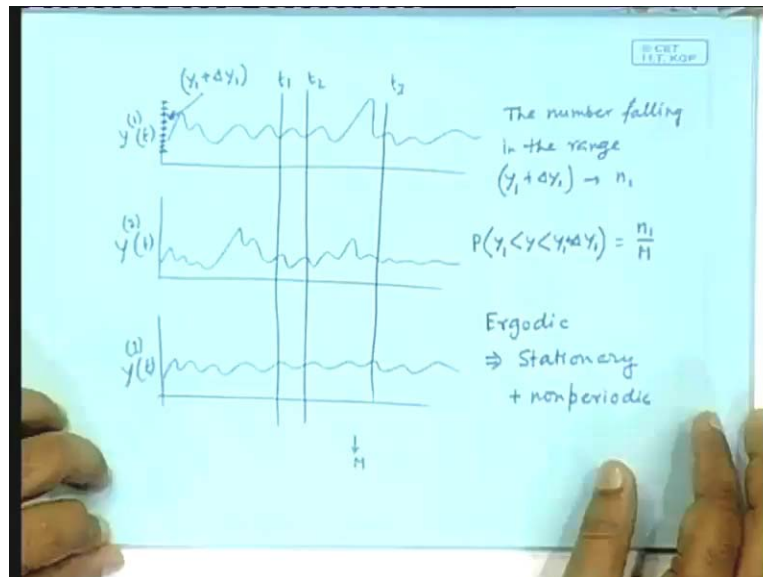 © CET
I.I.T. KGP
(y₁ + Δy₁)
t₁
t₂
t₃
y⁽¹⁾(t)
The number falling
in the range
(y₁ + Δy₁) → n₁
y⁽²⁾(t)
P(y₁ < y < y₁+Δy₁) = n₁/M
y⁽³⁾(t)
Ergodic
⇒ Stationary
+ nonperiodic
↓
M